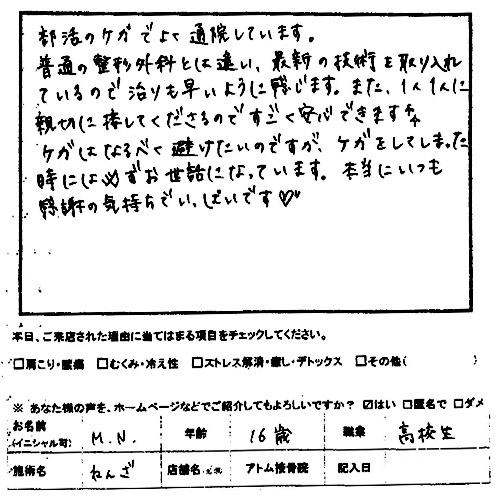 部活のケガでよく通院しています。
普通の整形外科とは違い、最新の技術を取り入れ
ているので治りも早いように感じます。また、1人1人に
親切に接してくださるのですごく安心できます
ケガはなるべく避けたいのですが、ケガをしてしまった
時には必ずお世話になっています。本当にいつも
感謝の気持ちでいっぱいです♡
本日、ご来店された理由に当てはまる項目をチェックしてください。
□肩こり・腰痛 □むくみ・冷え性 □ストレス解消・癒し・デトックス □その他(
※ あなた様の声を、ホームページなどでご紹介してもよろしいですか? ☑はい □匿名で □ダメ
お名前(イニシャル可) M.N. 年齢 16歳 職業 高校生
施術名 ねんざ 店舗名 アトム接骨院 記入日